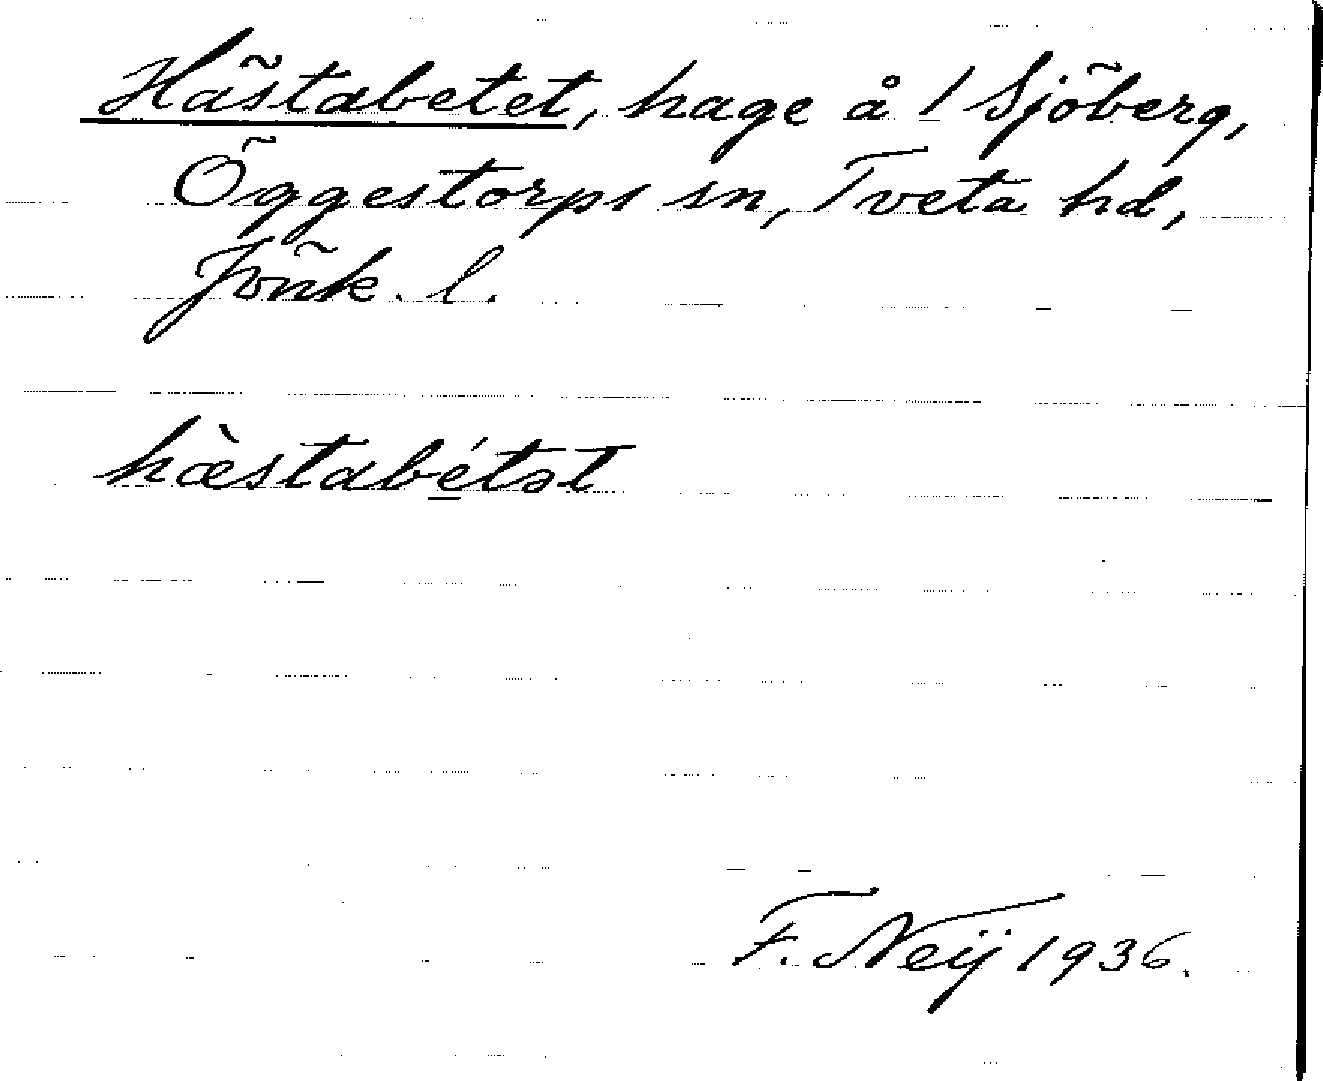 Hästabetet, hage å 1 Sjöberg,
Öggestorps sn, Tveta hd,
Jönk. l.
hæ̀stabétət
F. Neij 1936.